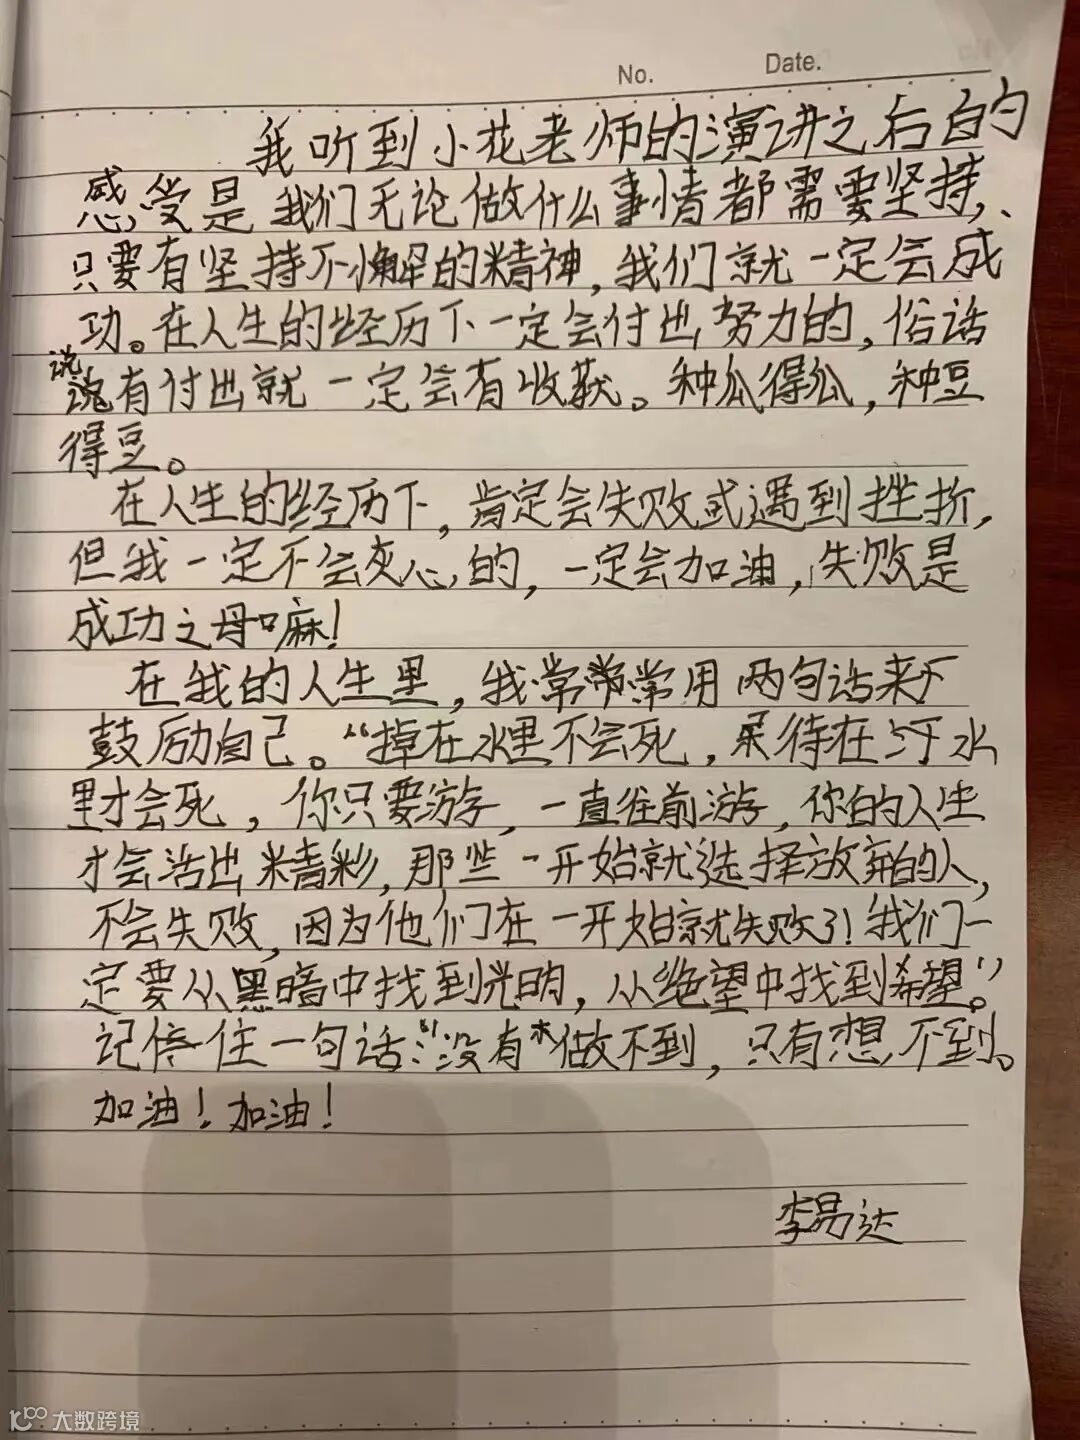 No. Date.
我听到小花老师的演讲之后的
感受是,我们无论做什么事情都需要坚持,
只要有坚持不懈的精神,我们就一定会成
功。在人生的经历下一定会付出努力的,俗话
说有付出就一定会有收获。种瓜得瓜,种豆
得豆。
在人生的经历下,肯定会失败或遇到挫折,
但我一定不会灰心的,一定会加油,失败是
成功之母嘛!
在我的人生里,我常常常用两句话来
鼓励自己。“掉在水里不会死,待在污水
里才会死,你只要游,一直往前游,你的人生
才会活出精彩,那些一开始就选择放弃的人,
不会失败,因为他们在一开始就失败了!我们一
定要从黑暗中找到光明,从绝望中找到希望。”
记住一句话:“没有做不到,只有想不到。
加油!加油!
李易达
大数跨境